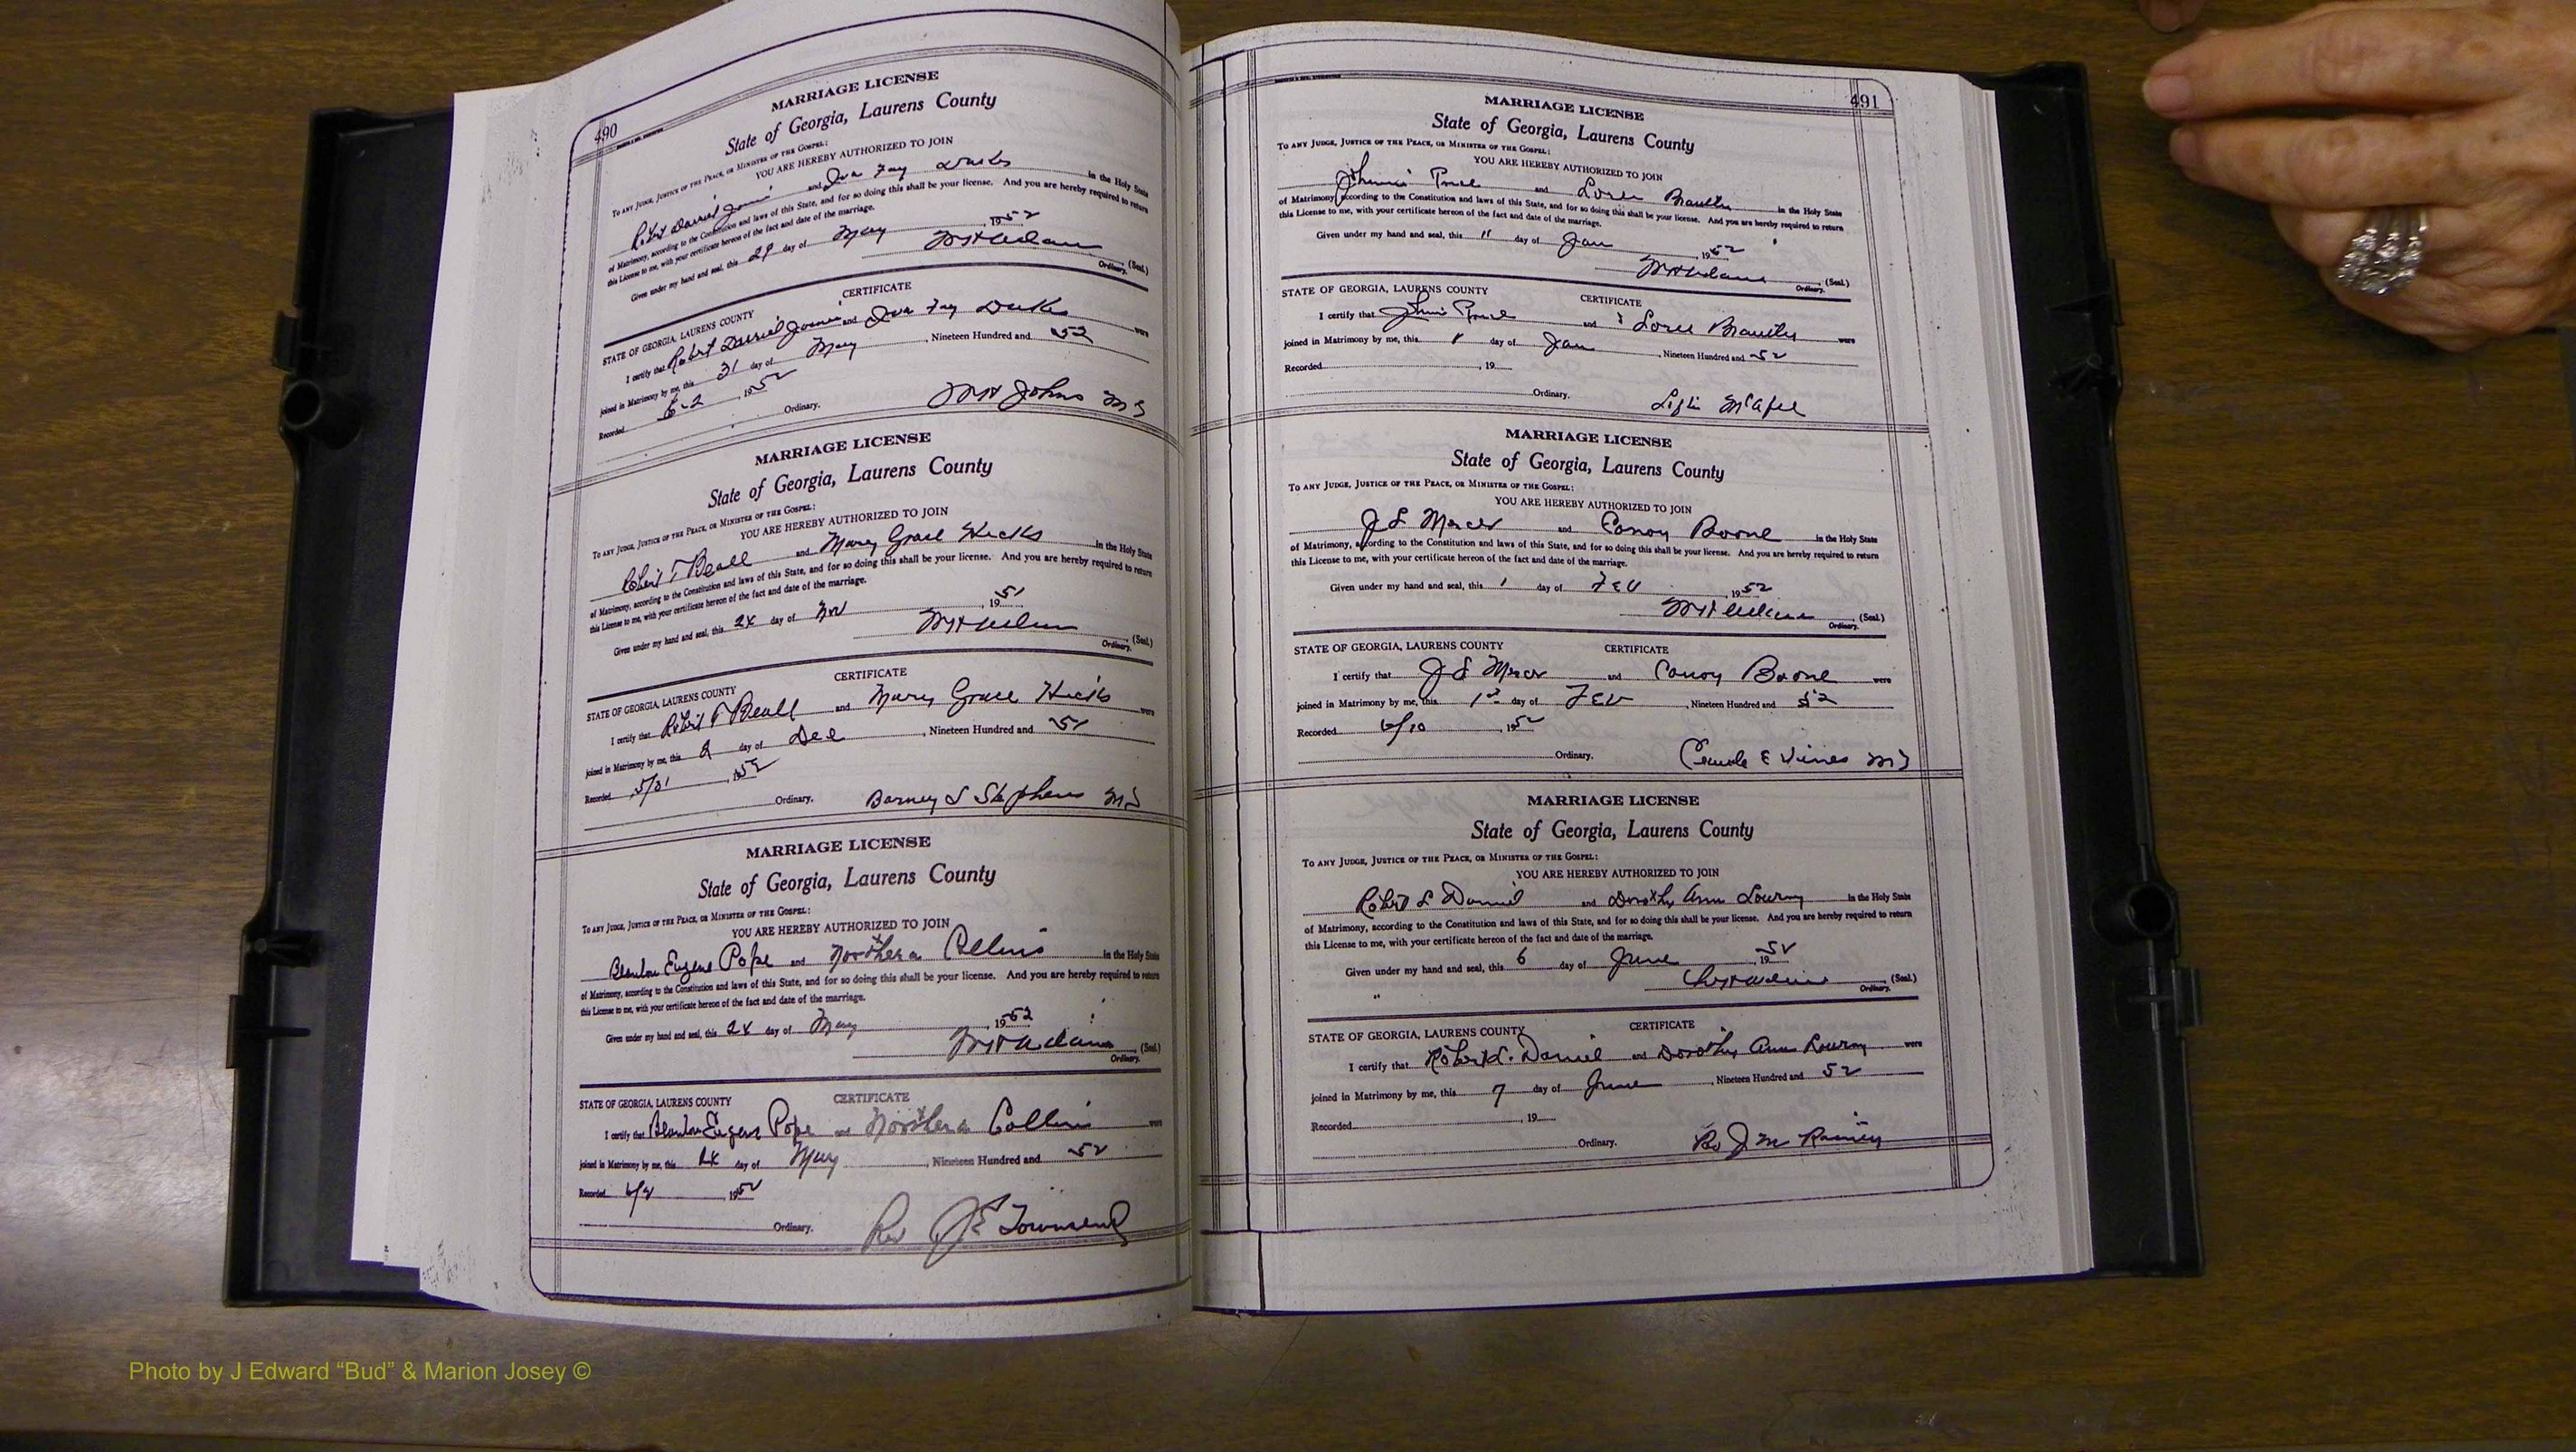 490
MARRIAGE LICENSE
State of Georgia, Laurens County
TO ANY JUDGE, JUSTICE OF THE PEACE, OR MINISTER OF THE GOSPEL:
YOU ARE HEREBY AUTHORIZED TO JOIN
Robert and Iva Fay Dukes in the Holy State
of Matrimony, according to the Constitution and laws of this State, and for so doing this shall be your license. And you are hereby required to return
this License to me, with your certificate hereon of the fact and date of the marriage.
Given under my hand and seal, this 29 day of May, 1952
(Seal.)
Ordinary.
CERTIFICATE
STATE OF GEORGIA, LAURENS COUNTY
I certify that Robert and Iva Fay Dukes were
joined in Matrimony by me, this 31 day of May, Nineteen Hundred and 52
Recorded 6-2, 1952
Ordinary. Johns MG
MARRIAGE LICENSE
State of Georgia, Laurens County
TO ANY JUDGE, JUSTICE OF THE PEACE, OR MINISTER OF THE GOSPEL:
YOU ARE HEREBY AUTHORIZED TO JOIN
Robert T Beall and Mary Grace Hicks in the Holy State
of Matrimony, according to the Constitution and laws of this State, and for so doing this shall be your license. And you are hereby required to return
this License to me, with your certificate hereon of the fact and date of the marriage.
Given under my hand and seal, this 24 day of Nov, 1951
(Seal.)
Ordinary.
CERTIFICATE
STATE OF GEORGIA, LAURENS COUNTY
I certify that Robert T Beall and Mary Grace Hicks were
joined in Matrimony by me, this 2 day of Dec, Nineteen Hundred and 51
Recorded 5/31, 1952
Ordinary. Barney S Stephens MG
MARRIAGE LICENSE
State of Georgia, Laurens County
TO ANY JUDGE, JUSTICE OF THE PEACE, OR MINISTER OF THE GOSPEL:
YOU ARE HEREBY AUTHORIZED TO JOIN
Blanton Eugene Pope and Northera Collins in the Holy State
of Matrimony, according to the Constitution and laws of this State, and for so doing this shall be your license. And you are hereby required to return
this License to me, with your certificate hereon of the fact and date of the marriage.
Given under my hand and seal, this 24 day of May, 1952
(Seal.)
Ordinary.
CERTIFICATE
STATE OF GEORGIA, LAURENS COUNTY
I certify that Blanton Eugene Pope and Northera Collins were
joined in Matrimony by me, this 24 day of May, Nineteen Hundred and 52
Recorded, 1952
Ordinary. Rev J E Townsend
491
MARRIAGE LICENSE
State of Georgia, Laurens County
TO ANY JUDGE, JUSTICE OF THE PEACE, OR MINISTER OF THE GOSPEL:
YOU ARE HEREBY AUTHORIZED TO JOIN
Johnnie and Loree Brantley in the Holy State
of Matrimony, according to the Constitution and laws of this State, and for so doing this shall be your license. And you are hereby required to return
this License to me, with your certificate hereon of the fact and date of the marriage.
Given under my hand and seal, this 11 day of Jan, 1952
(Seal.)
Ordinary.
STATE OF GEORGIA, LAURENS COUNTY CERTIFICATE
I certify that and Loree Brantley were
joined in Matrimony by me, this day of Jan, Nineteen Hundred and 52
Recorded, 19
Ordinary. McAfee
MARRIAGE LICENSE
State of Georgia, Laurens County
TO ANY JUDGE, JUSTICE OF THE PEACE, OR MINISTER OF THE GOSPEL:
YOU ARE HEREBY AUTHORIZED TO JOIN
J L Mercer and Conoy Boone in the Holy State
of Matrimony, according to the Constitution and laws of this State, and for so doing this shall be your license. And you are hereby required to return
this License to me, with your certificate hereon of the fact and date of the marriage.
Given under my hand and seal, this 1 day of Feb, 1952
(Seal.)
Ordinary.
STATE OF GEORGIA, LAURENS COUNTY CERTIFICATE
I certify that J L Mercer and Conoy Boone were
joined in Matrimony by me, this 1st day of Feb, Nineteen Hundred and 52
Recorded 6/10, 1952
Ordinary. E Vines MG
MARRIAGE LICENSE
State of Georgia, Laurens County
TO ANY JUDGE, JUSTICE OF THE PEACE, OR MINISTER OF THE GOSPEL:
YOU ARE HEREBY AUTHORIZED TO JOIN
Robert L Daniel and Dorothy Ann Lowery in the Holy State
of Matrimony, according to the Constitution and laws of this State, and for so doing this shall be your license. And you are hereby required to return
this License to me, with your certificate hereon of the fact and date of the marriage.
Given under my hand and seal, this 6 day of June, 1952
(Seal.)
Ordinary.
STATE OF GEORGIA, LAURENS COUNTY CERTIFICATE
I certify that Robert L. Daniel and Dorothy Ann Lowery were
joined in Matrimony by me, this 7 day of June, Nineteen Hundred and 52
Recorded, 19
Ordinary. Rev J M
Photo by J Edward “Bud” & Marion Josey ©